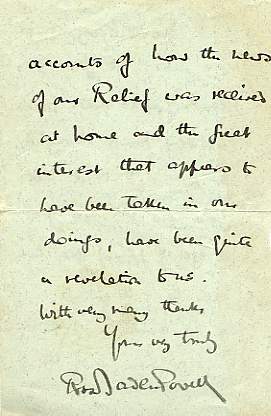 accounts of how the news
of our Relief was received
at home and the great
interest that appears to
have been taken in our
doings, have been quite
a revelation to us.
With very many thanks
Yours very truly
RSS Baden Powell